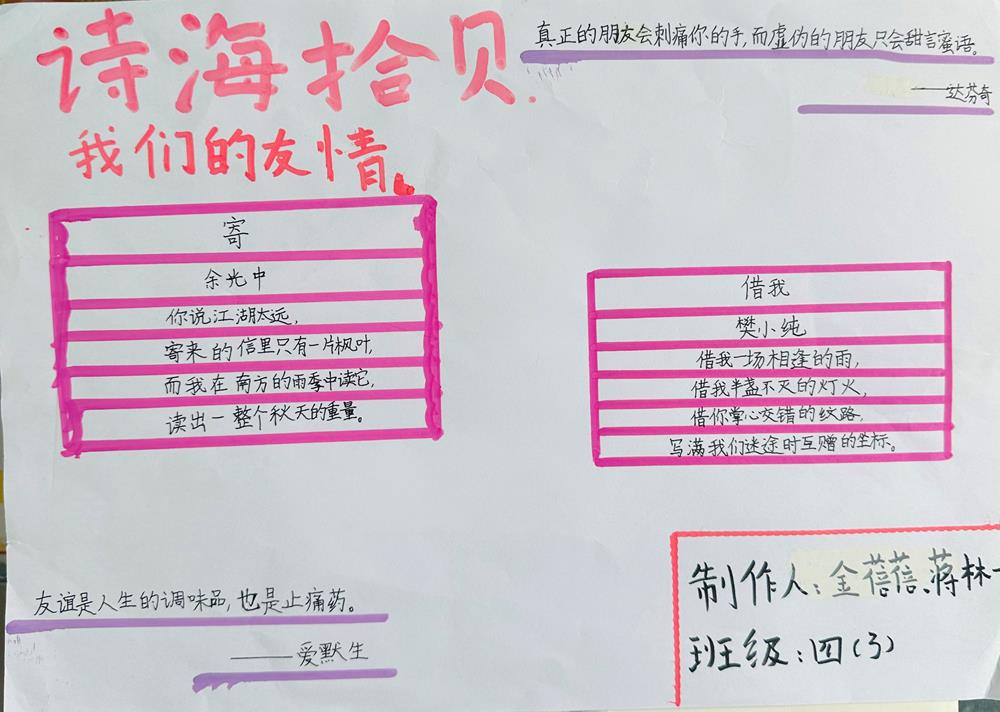 诗海拾贝.
我们的友情。
真正的朋友会刺痛你的手,而虚伪的朋友只会甜言蜜语。
——达芬奇
寄
余光中
你说江湖太远,
寄来的信里只有一片枫叶,
而我在南方的雨季中读它,
读出一整个秋天的重量。
借我
樊小纯
借我一场相逢的雨,
借我半盏不灭的灯火,
借你掌心交错的纹路,
写满我们迷途时互赠的坐标。
友谊是人生的调味品,也是止痛药。
——爱默生
制作人:金蓓蓓、蒋林
班级:四(3)